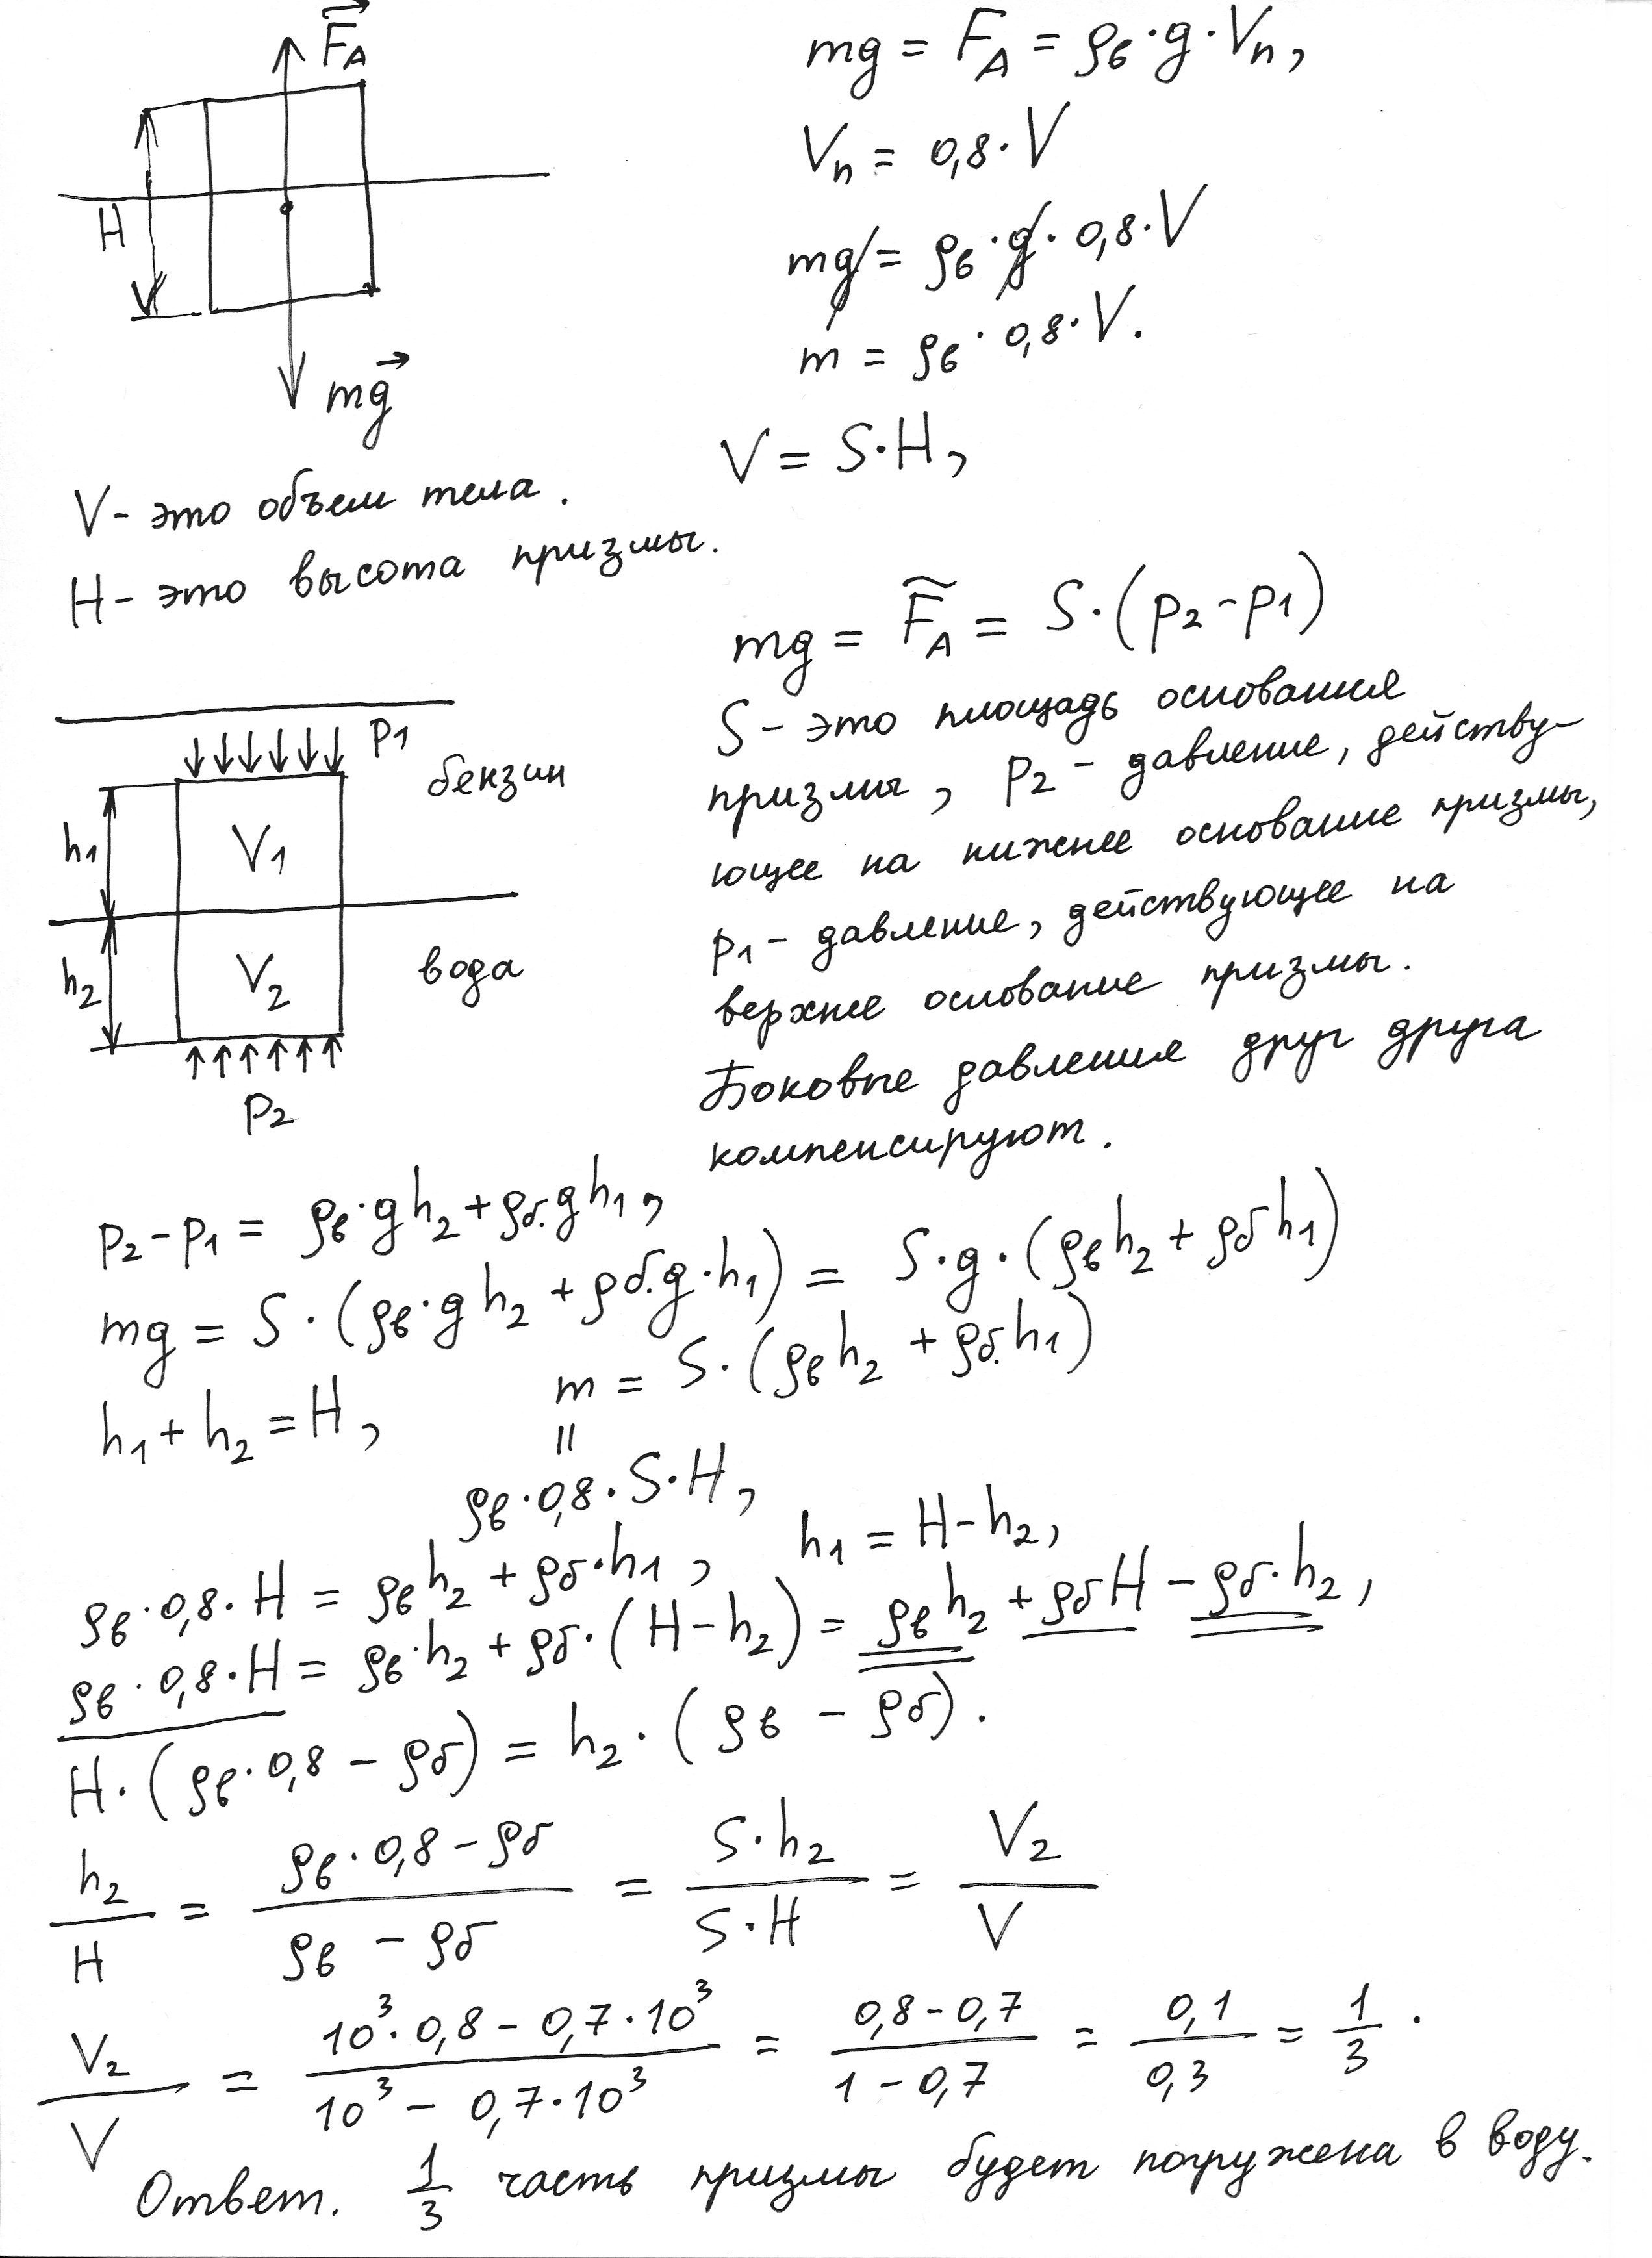 F_A
mg = F_A = ρв·g·Vп,
Vп = 0,8·V
H
mg = ρв·g·0,8·V
m = ρв·0,8·V.
mg
V = S·H,
V - это объем тела.
H - это высота призмы.
mg = F̃_A = S·(p₂-p₁)
S - это площадь основания
призмы, p₂ - давление, действу-
ющее на нижнее основание призмы,
p₁ - давление, действующее на
верхнее основание призмы.
Боковые давления друг друга
компенсируют.
p₁
бензин
h₁
V₁
h₂
V₂
вода
p₂
p₂-p₁ = ρв·gh₂+ρб.gh₁,
mg = S·(ρв·gh₂+ρб.g·h₁) = S·g·(ρвh₂+ρбh₁)
h₁+h₂=H, m = S·(ρвh₂+ρб.h₁)
=
ρв·0,8·S·H,
ρв·0,8·H = ρвh₂+ρб·h₁, h₁ = H-h₂,
ρв·0,8·H = ρв·h₂+ρб·(H-h₂) = ρвh₂+ρбH-ρб·h₂,
H·(ρв·0,8-ρб) = h₂·(ρв-ρб).
h₂/H = (ρв·0,8-ρб)/(ρв-ρб) = S·h₂/S·H = V₂/V
V₂/V = (10³·0,8-0,7·10³)/(10³-0,7·10³) = (0,8-0,7)/(1-0,7) = 0,1/0,3 = 1/3.
Ответ. 1/3 часть призмы будет погружена в воду.